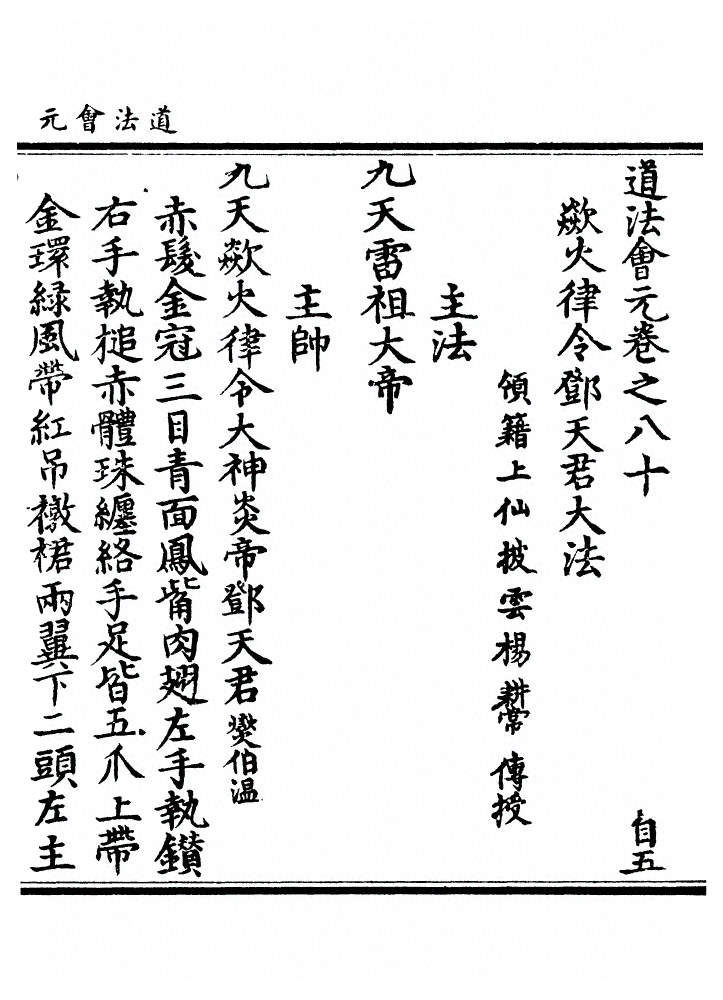 道法會元
道法會元卷之八十 自五
歘火律令鄧天君大法
領籍上仙披雲楊耕常傳授
主法
九天雷祖大帝
主帥
九天歘火律令大神炎帝鄧天君燮伯温
赤髮金冠三目青面鳳觜肉翅左手執鑚
右手執槌赤體珠纏絡手足皆五爪上帶
金環緑風帶紅吊裙兩翼下二頭左主